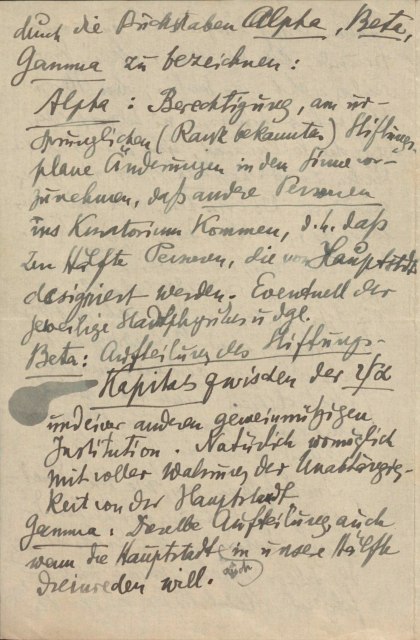 durch die Buchstaben Alpha, Beta,
Gamma zu bezeichnen:
Alpha: Berechtigung, am ur-
sprünglichen (Rank bekannten) Stiftungs
plane Änderungen in dem Sinne vor-
zunehmen, daß andere Personen
ins Kuratorium kommen, d.h. daß
zur Hälfte Personen, die von Hauptstadt
designiert werden. Eventuell der
jeweilige Stadtphysikus u dgl.
Beta: Aufteilung des Stiftungs-
Kapitals zwischen der
und einer anderen gemeinnützigen
Institution. Natürlich womöglich
mit voller Wahrung der Unabhängig-
keit von der Hauptstadt
Gamma: Dieselbe Aufteilung auch
wenn die Hauptstadt in unsere Hälfte
auch
dreinreden will.